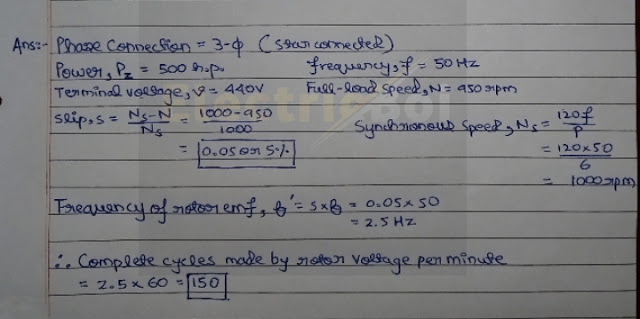 Ans:- Phase Connection = 3-ϕ (Star connected)
Power, Pz = 500 h.p. frequency, f = 50 Hz
Terminal voltage, V = 440V Full-load speed, N = 950 rpm
slip, s = Ns-N/Ns = 1000-950/1000
= 0.05 or 5%
Synchronous speed, Ns = 120f/P
= 120x50/6
= 1000 rpm
Frequency of rotor emf, f' = s x f = 0.05 x 50
= 2.5 Hz
∴ Complete cycles made by rotor voltage per minute
= 2.5 x 60 = 150